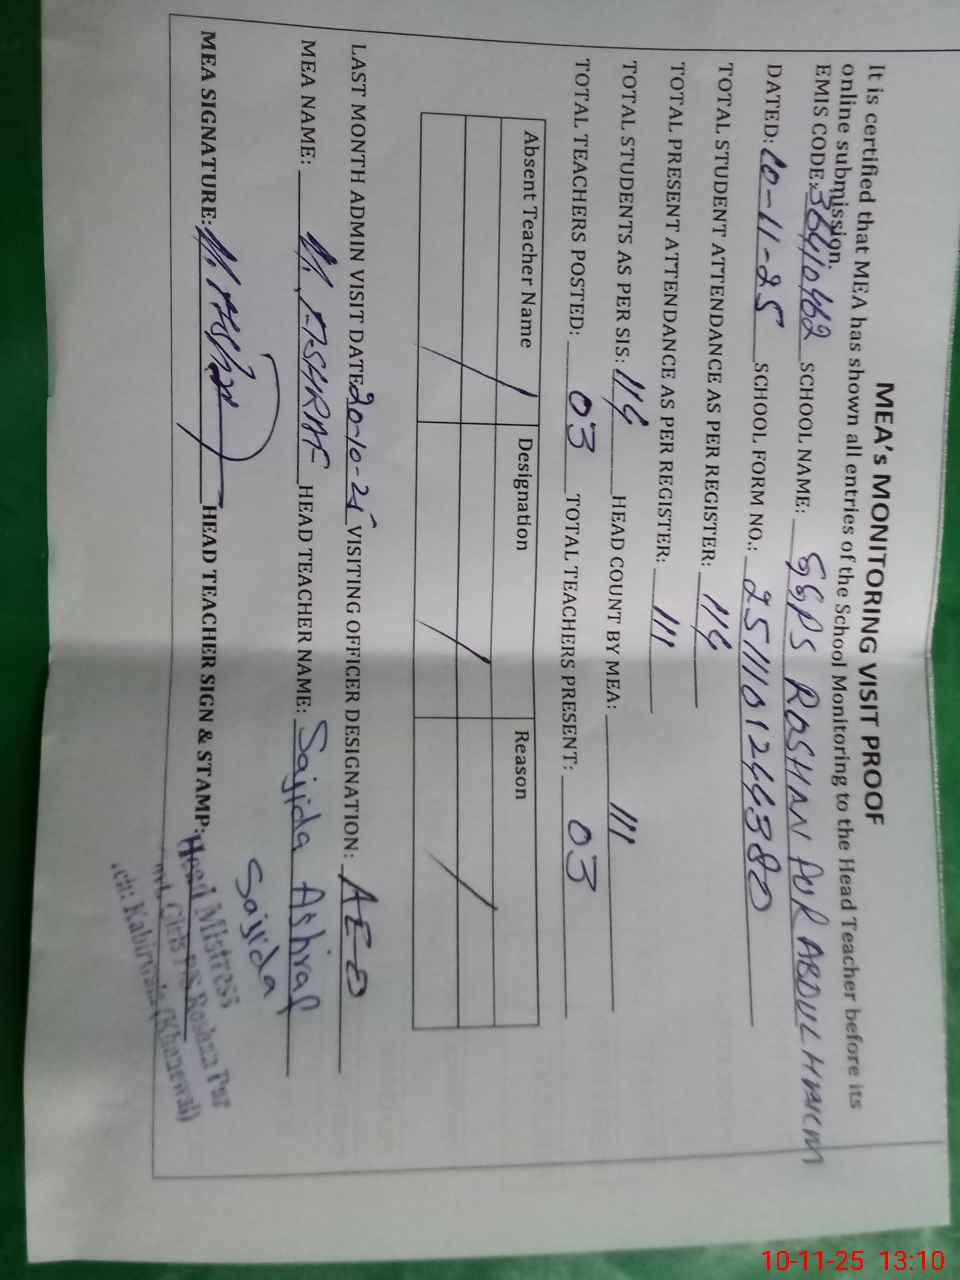 MEA's MONITORING VISIT PROOF
It is certified that MEA has shown all entries of the School Monitoring to the Head Teacher before its
online submission.
EMIS CODE: 36410462 SCHOOL NAME: GGPS ROSHAN PUR ABDUL HAKIM
DATED: 10-11-25 SCHOOL FORM NO.: 2511101244380
TOTAL STUDENT ATTENDANCE AS PER REGISTER: 114
TOTAL PRESENT ATTENDANCE AS PER REGISTER: 111
TOTAL STUDENTS AS PER SIS: 114 HEAD COUNT BY MEA: 111
TOTAL TEACHERS POSTED: 03 TOTAL TEACHERS PRESENT: 03
Absent Teacher Name Designation Reason
LAST MONTH ADMIN VISIT DATE 20-10-25 VISITING OFFICER DESIGNATION: AEO
MEA NAME: M. ASHRAF HEAD TEACHER NAME: Sajida Ashraf
Sajida
MEA SIGNATURE: M. Ashraf HEAD TEACHER SIGN & STAMP:
Head Mistress
Roshan Pur
Kabirwala (Khanewal)
10-11-25 13:10